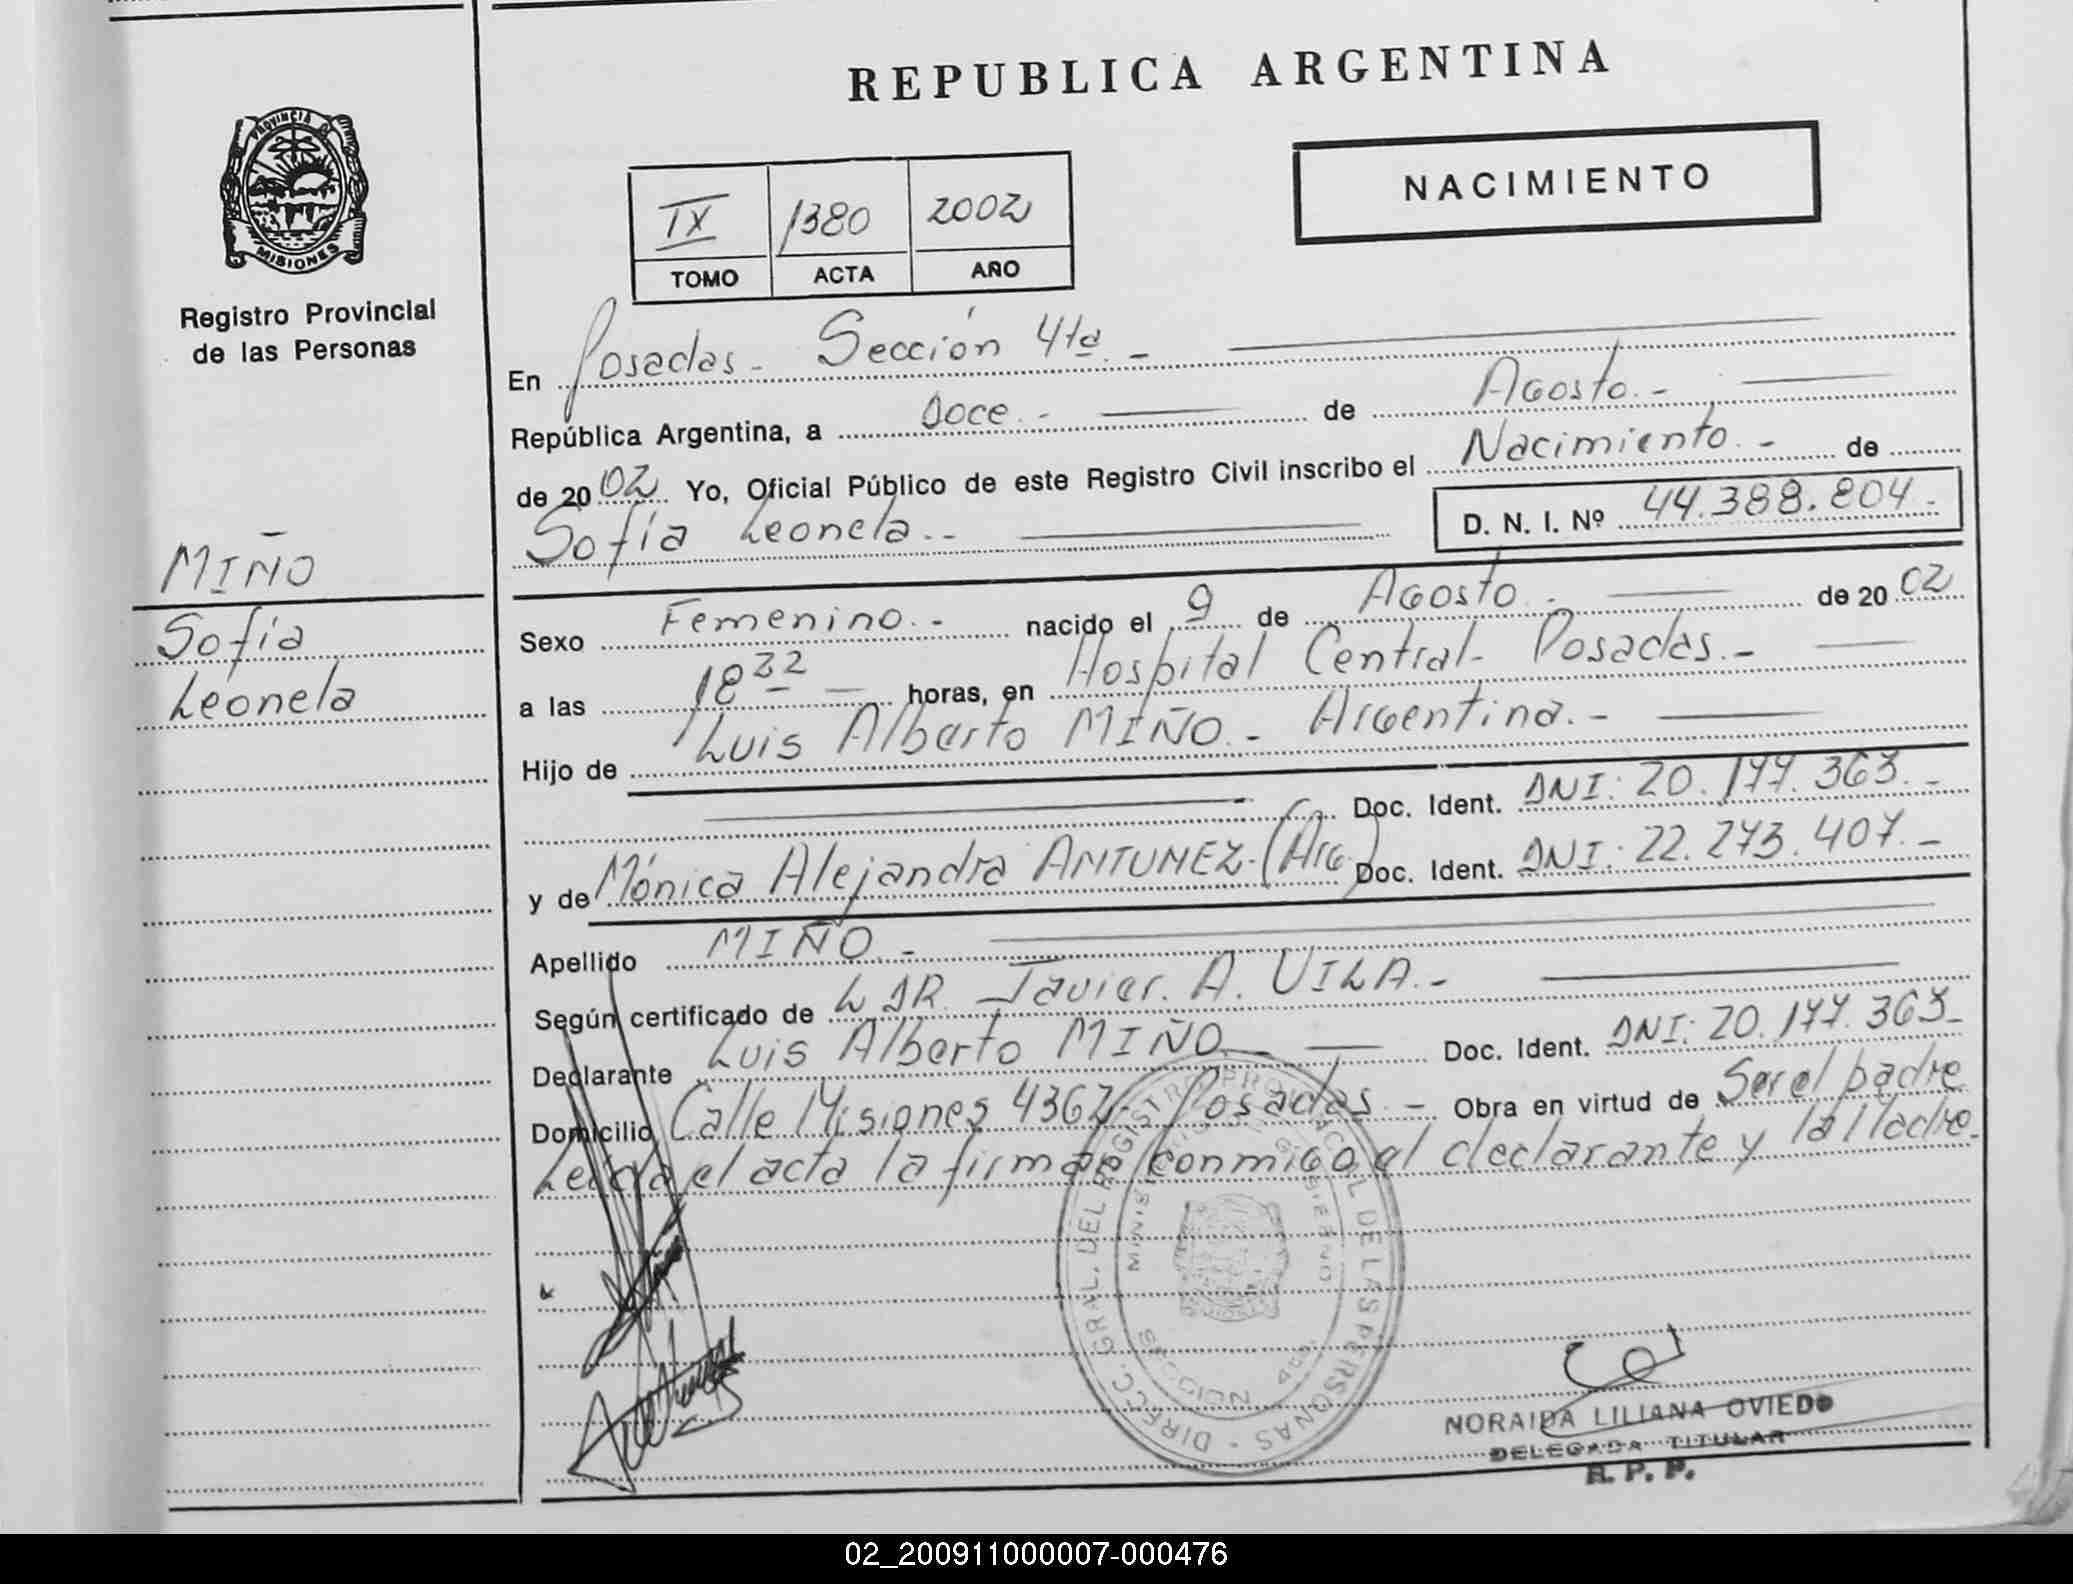 REPUBLICA ARGENTINA
NACIMIENTO
IX 1380 2002
TOMO ACTA AÑO
PROVINCIA D
MISIONES
Registro Provincial
de las Personas
MIÑO
Sofía
Leonela
En Posadas - Sección 4ta. -
República Argentina, a Doce. - de Agosto. -
de 2002 Yo, Oficial Público de este Registro Civil inscribo el Nacimiento. - de
Sofía Leonela. - D. N. I. Nº 44.388.804. -
Sexo Femenino. - nacido el 9 de Agosto. - de 2002
a las 18 32 - horas, en Hospital Central - Posadas. -
Hijo de Luis Alberto MIÑO. - Argentina. -
Doc. Ident. DNI: 20.177.363. -
y de Mónica Alejandra ANTUNEZ - (Arg.) Doc. Ident. DNI: 22.273.407. -
Apellido MIÑO. -
Según certificado de DR. Javier. A. VILA. -
Declarante Luis Alberto MIÑO. - Doc. Ident. DNI: 20.177.363 -
Domicilio Calle Misiones 4362 - Posadas. - Obra en virtud de Ser el padre
Leída el acta la firman conmigo el declarante y la Madre.
DIRECC. GRAL. DEL REGISTRO PROVINCIAL DE LAS PERSONAS -
SECCION 4ta.
NORAIDA LILIANA OVIEDO
DELEGADA TITULAR
R. P. P.
02_200911000007-000476